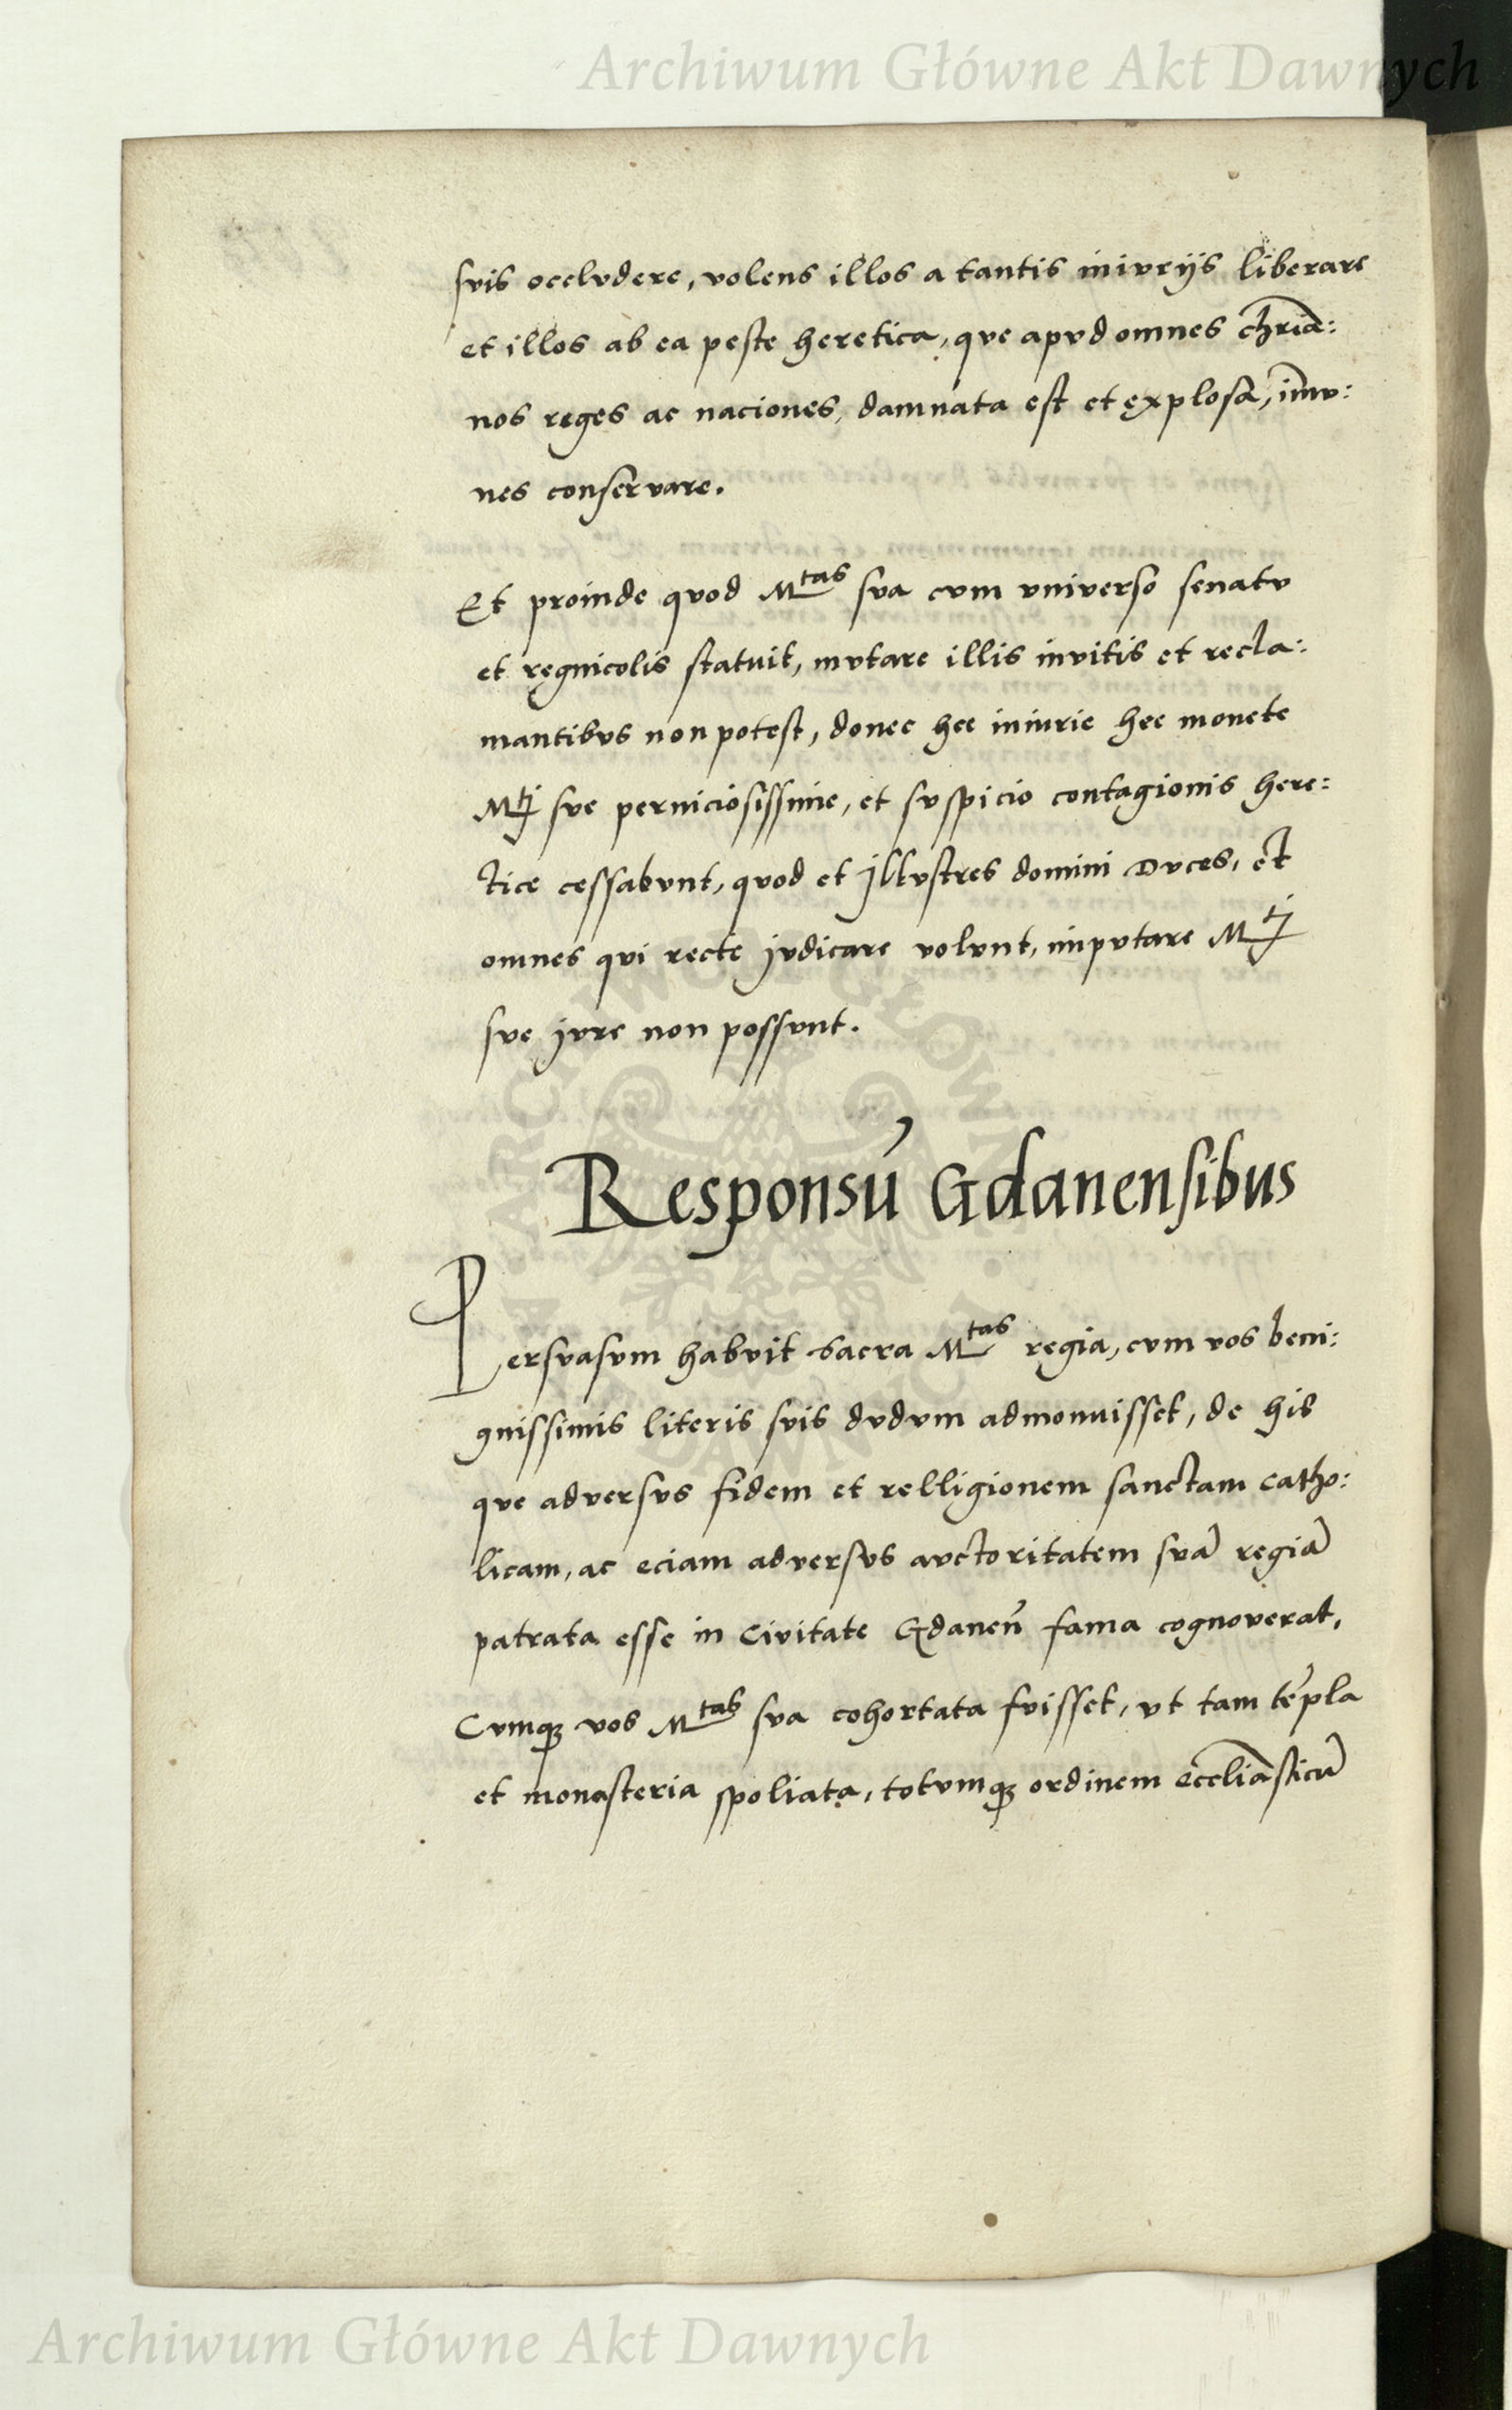 Archiwum Główne Akt Dawnych
suis occludere, volens illos a tantis iniurijs liberare
et illos ab ea peste heretica, que apud omnes chr̄ia:
nos reges ac naciones, damnata est et explosa, im̄u:
nes conservare.
Et proinde quod Mtas sua cum universo senatu
et regnicolis statuit, mutare illis invitis et recla:
mantibus non potest, donec hee iniurie hee monete
Mtj sue perniciosissime, et suspicio contagionis here:
tice cessabunt, quod et Illustres domini Duces, et
omnes qui recte judicare volunt, imputare Mtj
sue jure non possunt.
Responsū Gdanensibus
Persuasum habuit sacra Mtas regia, cum vos beni:
gnissimis literis suis dudum admonuisset, de his
que adversus fidem et relligionem sanctam catho:
licam, ac eciam adversus auctoritatem suā regiā
patrata esse in Civitate Gdanen̄ fama cognoverat,
Cumqȝ vos Mtas sua cohortata fuisset, ut tam tēpla
et monasteria spoliata, totumqȝ ordinem eccl̄iasticū
ARCHIWUM GŁÓWNE AKT DAWNYCH
Archiwum Główne Akt Dawnych